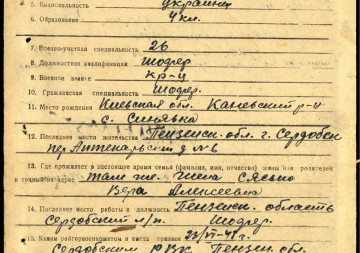 5. Национальность украинец
6. Образование 4 кл.
7. Военно-учетная специальность 26
8. Должностная квалификация шофер
9. Военное звание кр-ц
10. Гражданская специальность Шофер.
11. Место рождения Киевская обл. Каневский р-н
с. Синявка
12. Последнее место жительства Пензенск. обл. г. Сердобск
пер. Аптекарский д № 6
13. Где проживает в настоящее время семья (фамилия, имя, отчество) жены или родителей
и точный их адрес там же. жена
Вера Алексеевна
14. Последнее место работы и должность Пензенск. область
Сердобский Шофер.
15. Каким райгорвоенкоматом и когда призван
Сердобским РВК Пензен. обл.